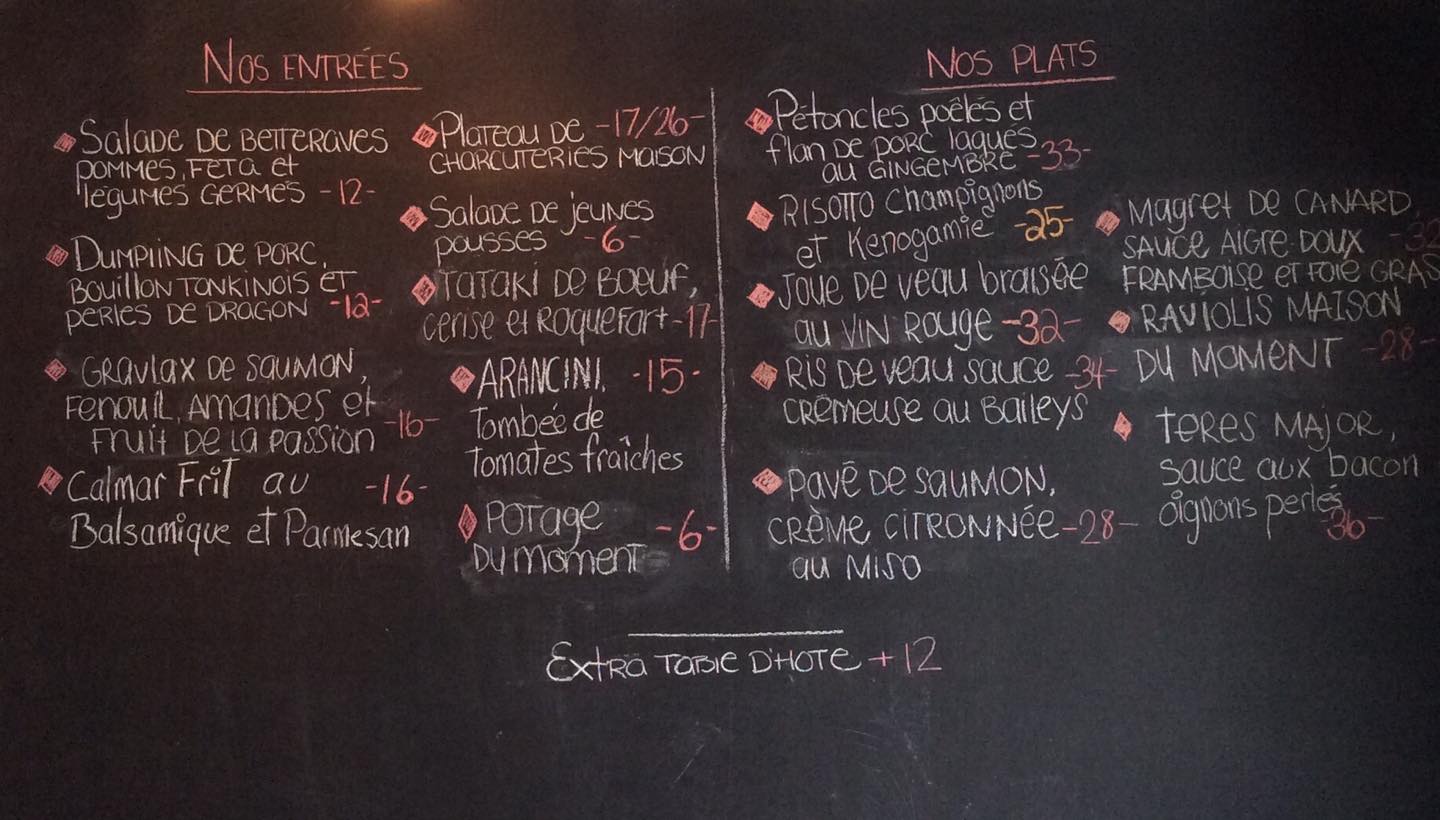 NOS ENTRÉES
Salade de betteraves
pommes, feta et
légumes germés -12-
Dumpling de porc,
Bouillon tonkinois et
perles de dragon -12-
Gravlax de saumon,
fenouil, amandes et
fruit de la passion -16-
Calmar Frit au -16-
Balsamique et Parmesan
Plateau de -17/26-
charcuteries maison
Salade de jeunes
pousses -6-
Tataki de boeuf,
cerise et Roquefort -17-
ARANCINI, -15-
Tombée de
tomates fraîches
Potage -6-
du moment
NOS PLATS
Pétoncles poêlés et
flan de porc laqués
au gingembre -33-
Risotto champignons
et Kenogamie -25-
Joue de veau braisée
au vin rouge -32-
Ris de veau sauce -34-
crémeuse au Baileys
Pavé de saumon,
crème citronnée -28-
au miso
Magret de CANARD
sauce aigre-doux -32
framboise et foie gras
RAVIOLIS MAISON
DU MOMENT -28-
TERES MAJOR,
sauce aux bacon
oignons perlés
-36-
Extra Table D'HOTE +12